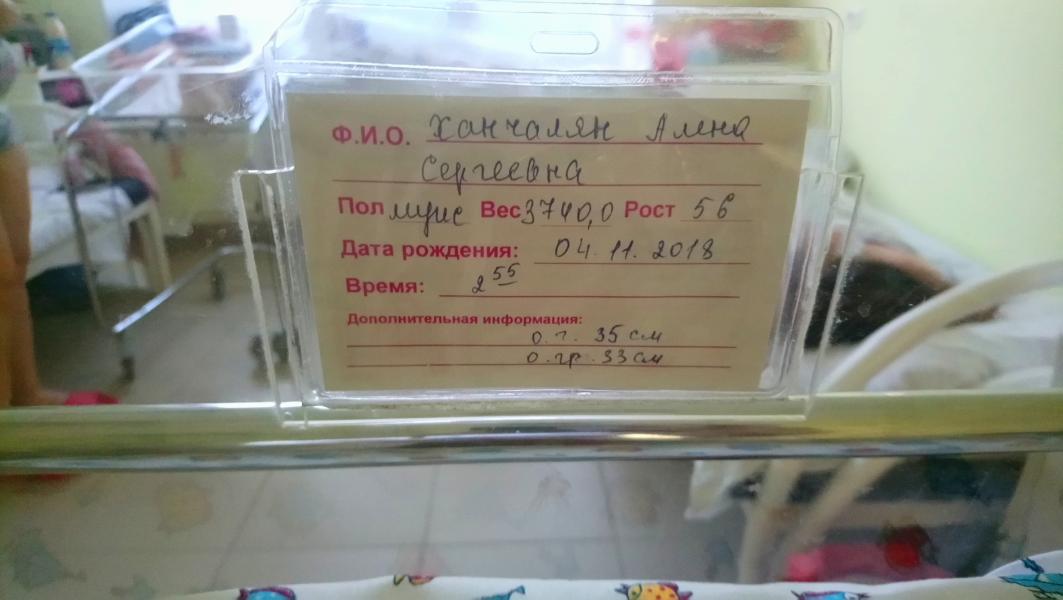 Ф.И.О. Ханчалян Алена
Сергеевна
Пол муж Вес 3740,0 Рост 56
Дата рождения: 04.11.2018
Время: 2 55
Дополнительная информация:
о.г. 35 см
о.гр. 33 см